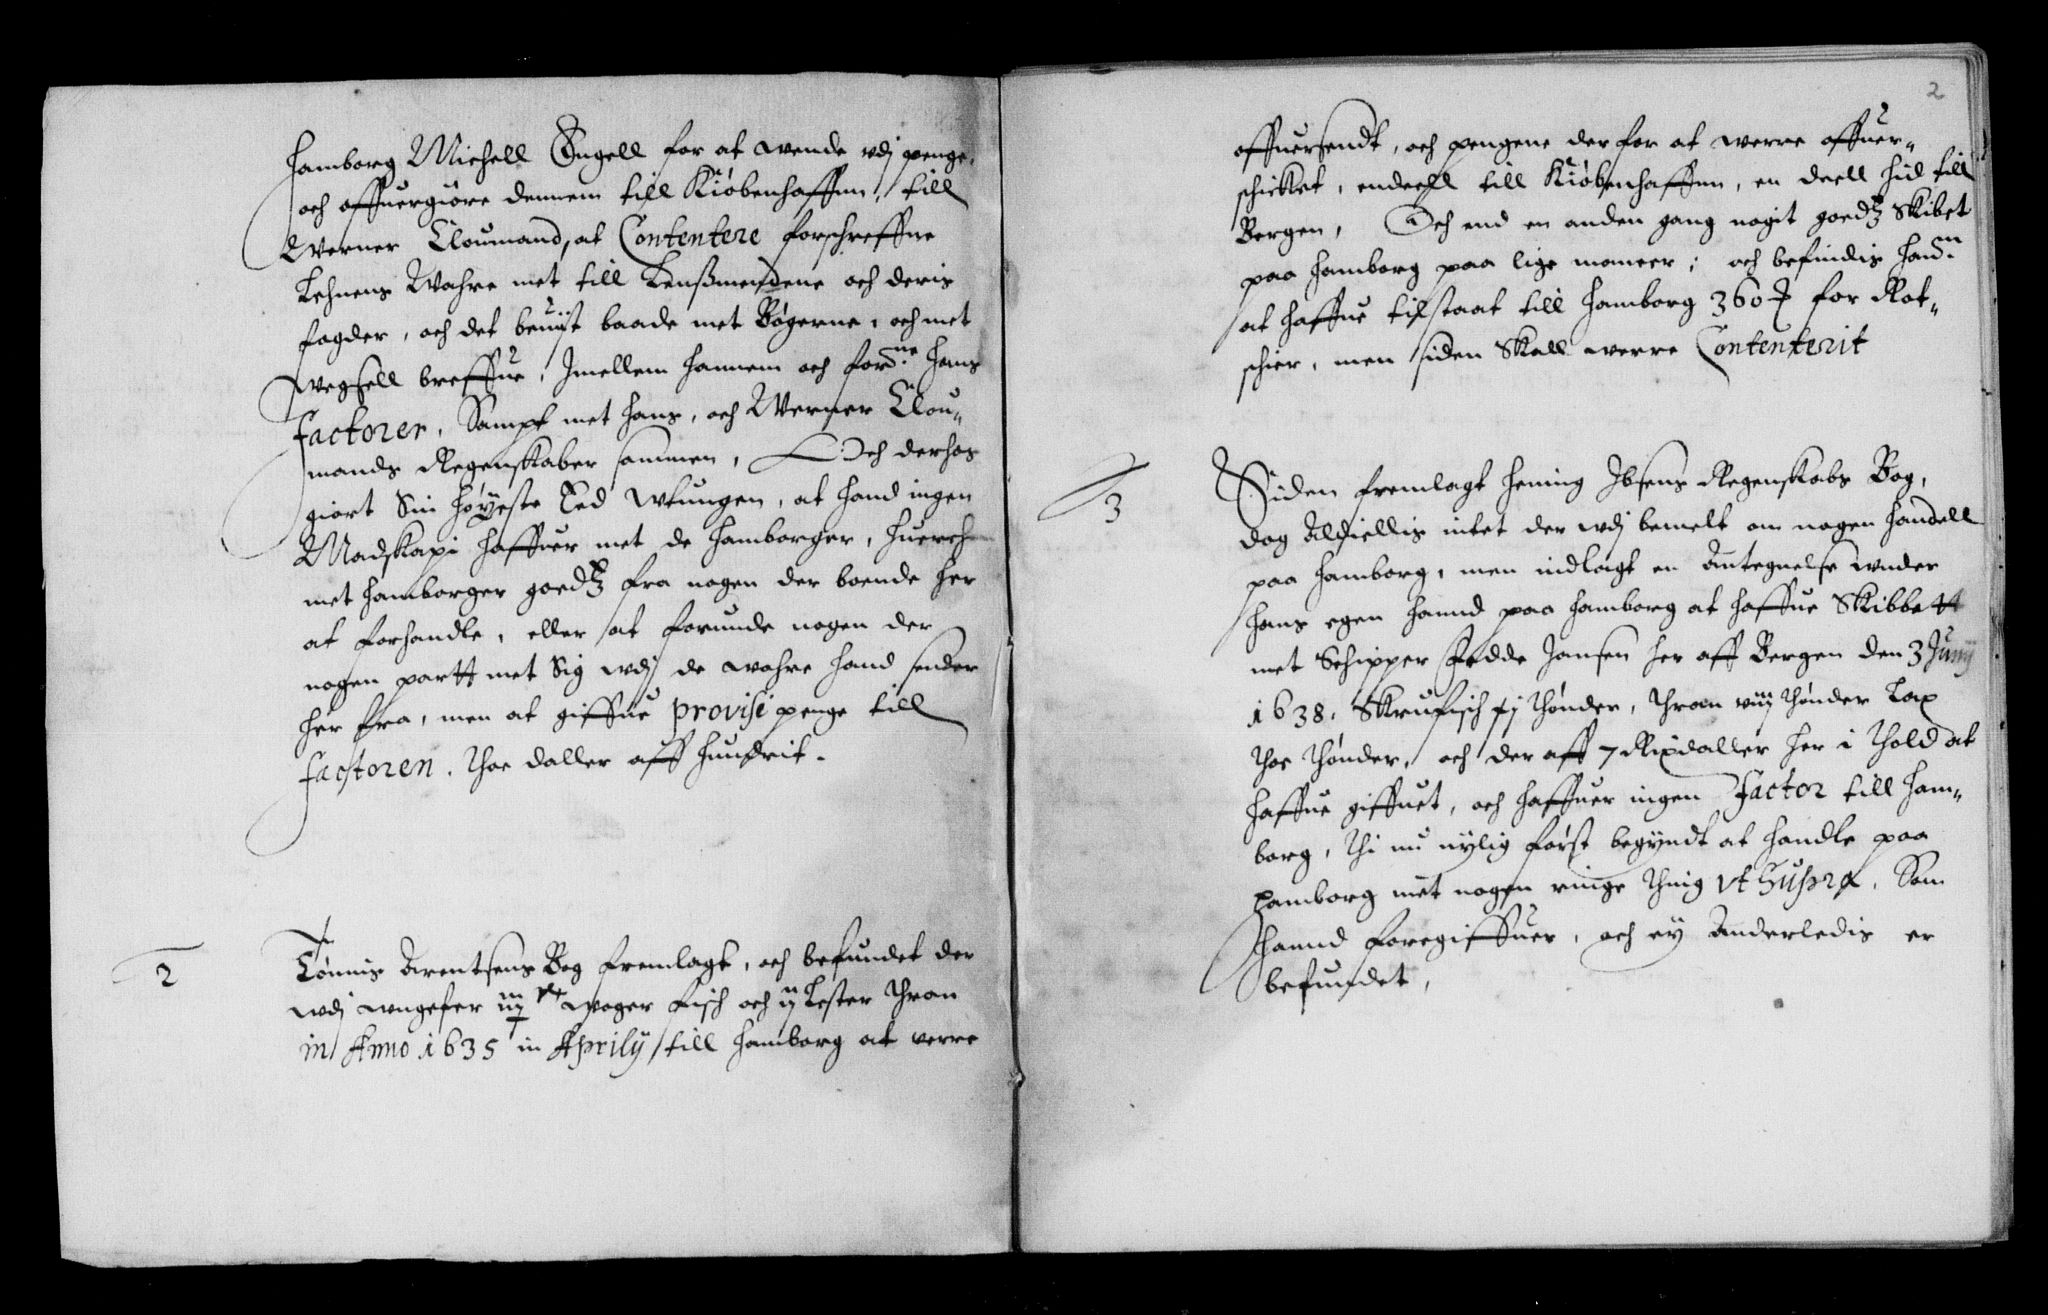 Hamborg Michell Engell for at wende vdj penge,
och offuergiøre dennem till Kiøbenhaffnn, till
Werner Cloumand, at Contentere forschreffne
Lehnens Wahre met till Lensmendene och deris
fogder, och det beuiist baade met Bøgerne, och met
wegsell breffue, Jmellem hannem och fordne hans
factorer, Sampt met hans, och Werner Clou„
mands Regenskaber sammen, Och derhos
giort Sin høyeste Eed Wtungen, at hand ingen
Madskapi haffuer met de Hamborger, huerch
met Hamborger goedz fra nogen der boende her
at forhandle, eller at forunde nogen der
nogen partt met Sig wdj de wahre hand sender
her fra, men at giffue provisi penge till
factoren. Thoe daller aff hundrit.
2
Tønnis Arentsens Bog fremlagt, och befundet der
wdj wngefer woger fisch och ij Lester Thran
in Anno 1635 in Aprilij till Hamborg at verre
2
offuersendt, och pengene der for at werre offuer„
schicket, endeell till Kiøbenhaffnn, en deell hid till
Bergen, Och end en anden gang nogit goedz Skibet
paa Hamborg paa lige maneer; och befindis handm
at haffue tilstaat till Hamborg 360 for Rot„
schier, men siden Skall werre Contenterit
3
Siden fremlagt Hening Ibsens Regenskabs Bog,
dog Aldiellis intet der wdj bemelt om nogen handell
paa Hamborg, men indlagt en Antegnelse wnder
hans egen hannd paa Hamborg at haffue Skibbett
met Schipper Fedde Jansen her aff Bergen den 3 Junij
1638. Skrufisch Thønder, Thran viiij Thønder Lax
Thoe Thønder, och der aff 7 Rixdaller her i Thold at
haffue giffuet, och haffuer ingen Factor till Ham„
borg, Thi nu nylig først begyndt at handle paa
Hamborg met nogen ringe Thnig vt Supra, Som
hannd foregiffuer, och ey Anderledis er
befundet,